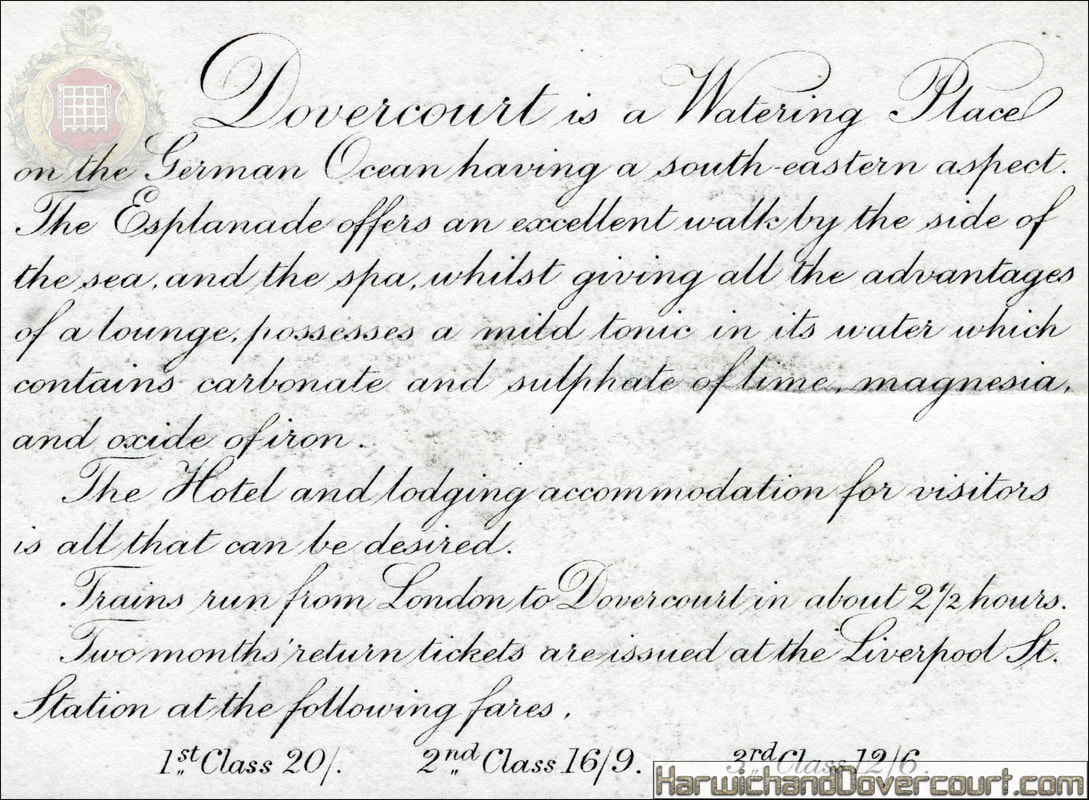 Dovercourt is a Watering Place
on the German Ocean having a south-eastern aspect.
The Esplanade offers an excellent walk by the side of
the sea, and the spa, whilst giving all the advantages
of a lounge, possesses a mild tonic in its water which
contains carbonate and sulphate of lime, magnesia,
and oxide of iron.
The Hotel and lodging accommodation for visitors
is all that can be desired.
Trains run from London to Dovercourt in about 2½ hours.
Two months' return tickets are issued at the Liverpool St.
Station at the following fares,
1st Class 20/. 2nd Class 16/9. 3rd Class 12/6.
HarwichandDovercourt.com